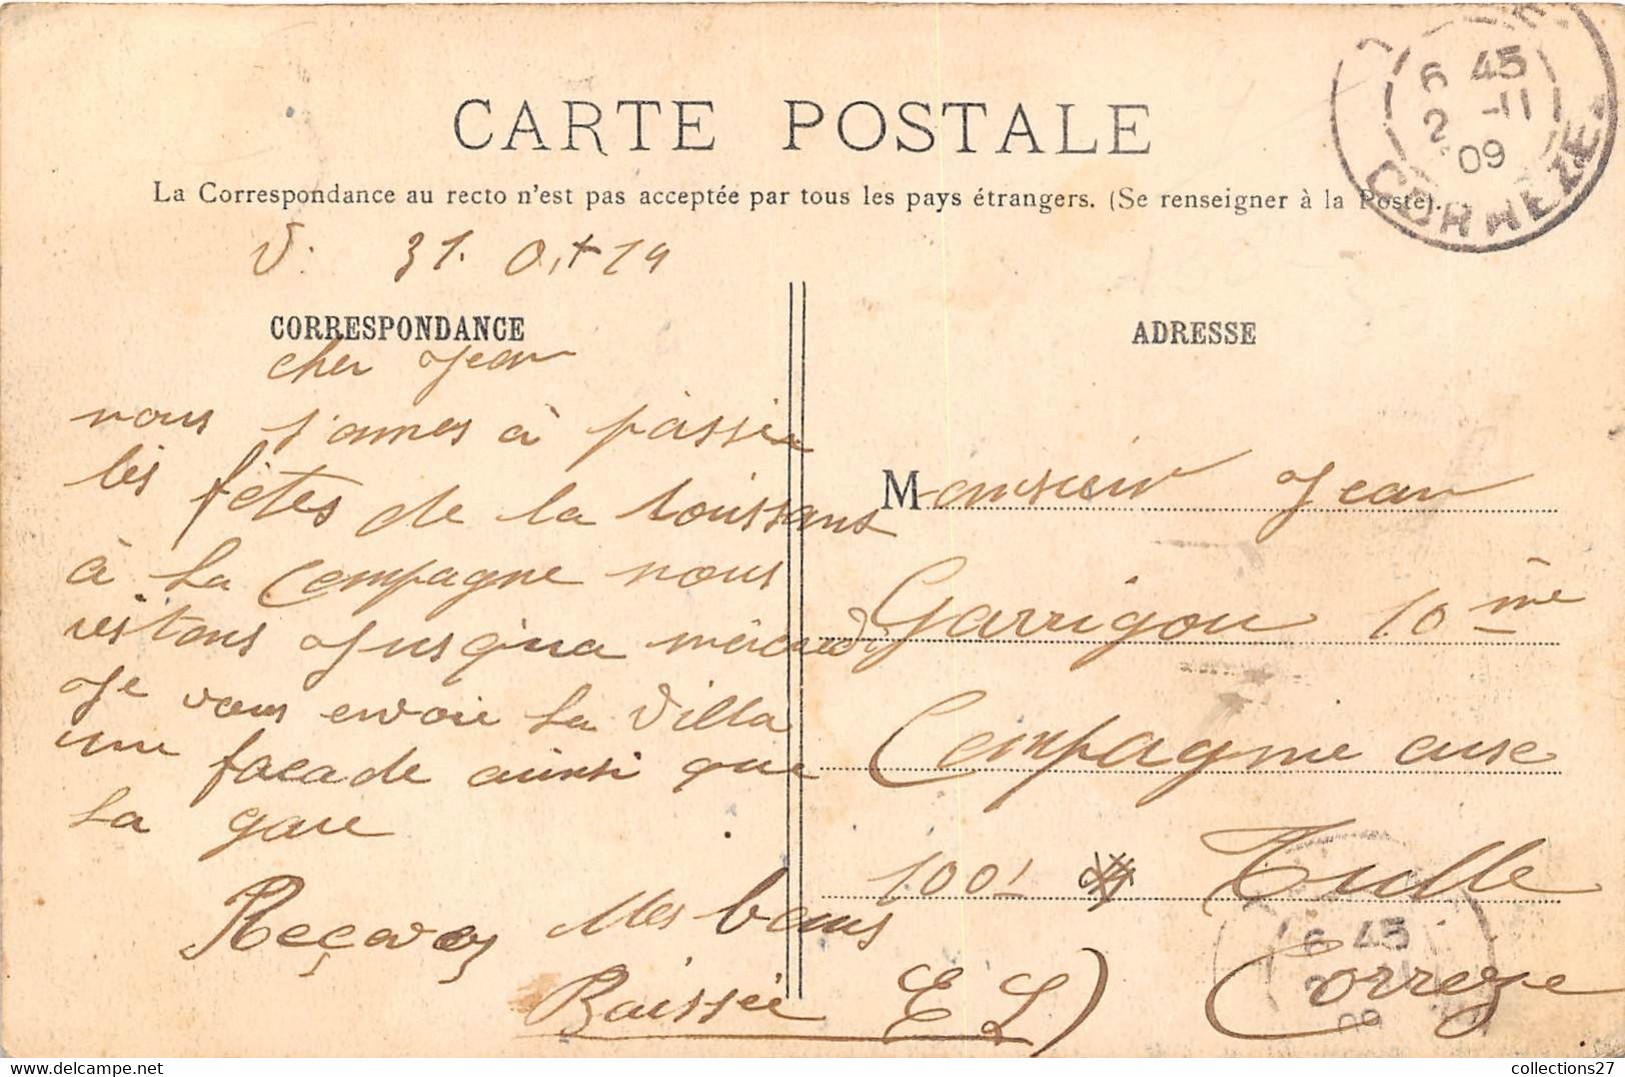 CARTE POSTALE
La Correspondance au recto n'est pas acceptée par tous les pays étrangers. (Se renseigner à la Poste).
6 45
2 -11
09
CORREZE
V. 31.
CORRESPONDANCE
cher Jean
nous somes à passée
les fêtes de la toussans
à la Compagne nous
restons jusqua mercredi
Je vous envoie la Villa
une facade ainsi que
la gare
Reçevez Mes bons
Baissée E L
ADRESSE
Monsieur Jean
Garrigou 10 me
Compagnie
100 Tulle
Correze
6 45
09
collections27